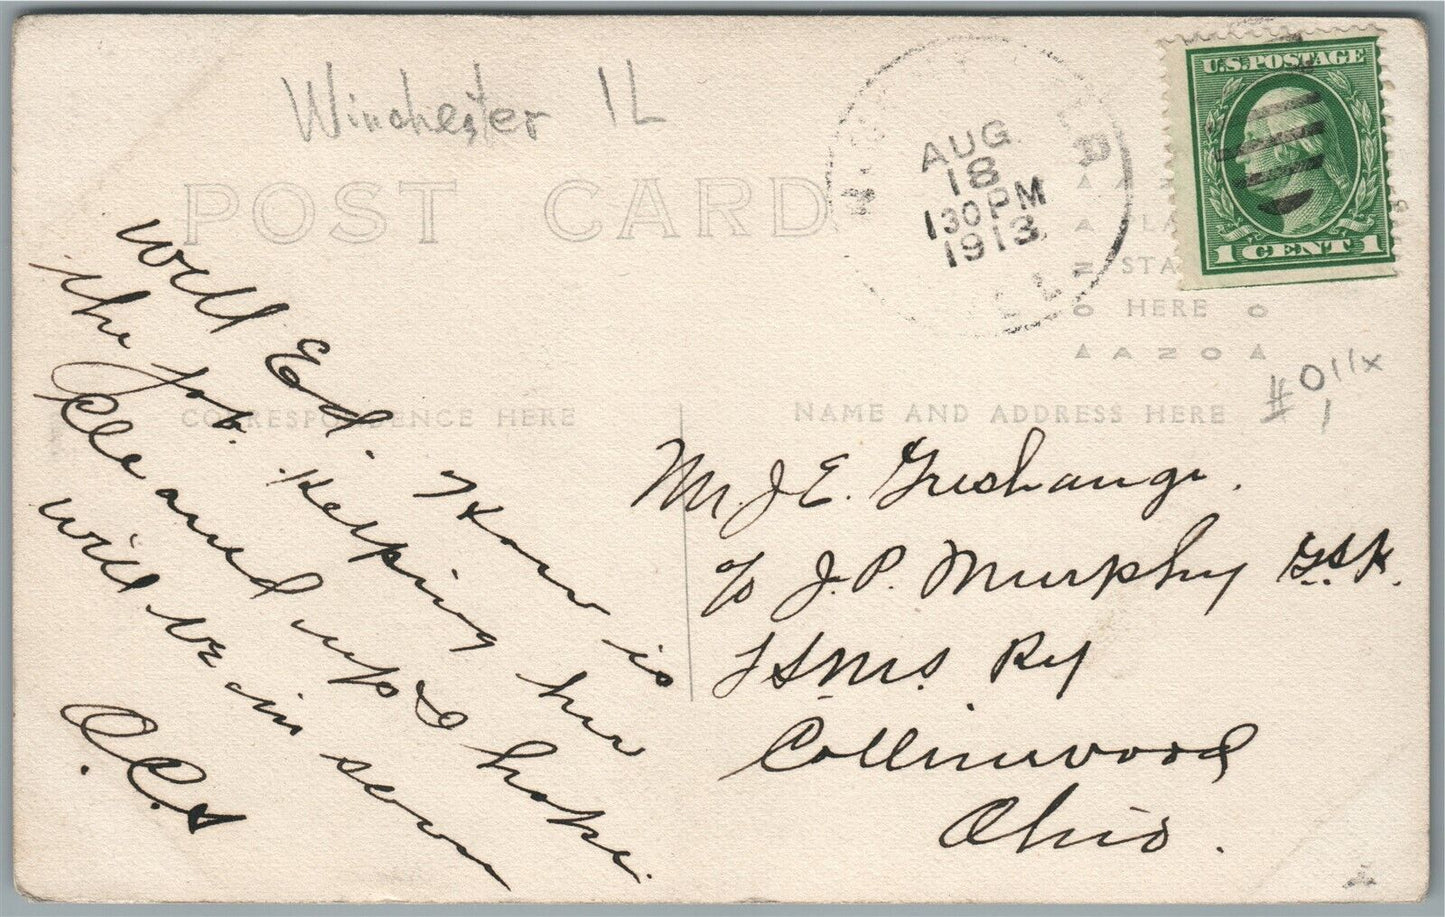 Winchester IL
POST CARD
AUG
18
130 PM
1913
ILL
U.S. POSTAGE
1 CENT 1
PLA
STA
HERE
AZO
#011x
1
CORRESPONDENCE HERE
NAME AND ADDRESS HERE
Well Ed. How is
the job. Keeping her
Cleaned up & hope
will be in soon
Mr. J E.
c/o J. P. Murphy
Ry
Collinwood
Ohio.